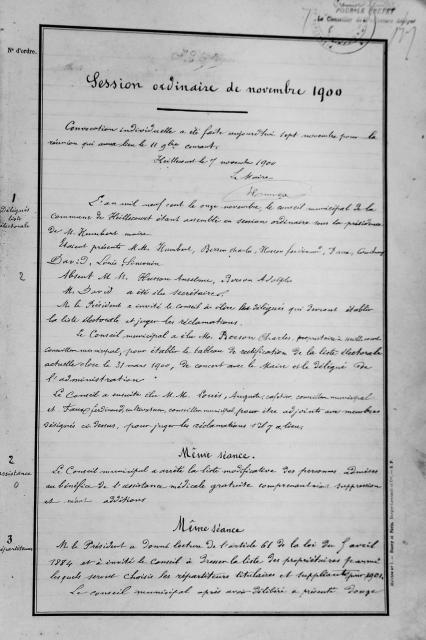 POUR LE PREFET
Le Conseiller de Préfecture délégué
N° d'ordre.
Session ordinaire de novembre 1900
Convocation individuelle a été faite aujourd'hui sept novembre pour la
réunion qui aura lieu le 11 9bre courant.
Heillecourt le 7 novembre 1900
Le Maire
1
Délégués
liste
électorale
L'an mil neuf cent le onze novembre, le conseil municipal de la
Commune de Heillecourt étant assemblé en session ordinaire sous la présidence
de M. Humbert maire
Etaient présents M.M. Humbert, Charles,
David, Louis
2
Absent M. M. Husson Anselme, Adolphe
M. David a été élu secrétaire.
M. le Président a invité le conseil à élire les délégués qui devront établir
la liste électorale et juger les réclamations.
Le Conseil municipal a élu M. Charles, propriétaire à
conseiller municipal, pour établir le tableau de rectification de la liste électorale
actuelle close le 31 mars 1900, de concert avec le Maire et le délégué de
l'administration
Le Conseil a ensuite élu M. M. Louis, Auguste, conseiller municipal
et Ferdinand, cultivateur, conseiller municipal pour être adjoints aux membres
désignés ci dessus, pour juger les réclamations s'il y a lieu.
Même séance.
2
assistance
0
Le Conseil municipal a arrêté la liste modificative des personnes admises
au bénéfice de l'assistance médicale gratuite comprenant suppression
et néant additions
Même séance
3
répartiteurs
M. le Président a donné lecture de l'article 61 de la loi du 5 avril
1884 et a invité le Conseil à dresser la liste des propriétaires parmi
lesquels seront choisis les répartiteurs titulaires et suppléants pour 1901.
Le conseil municipal après avoir délibéré a présenté douze